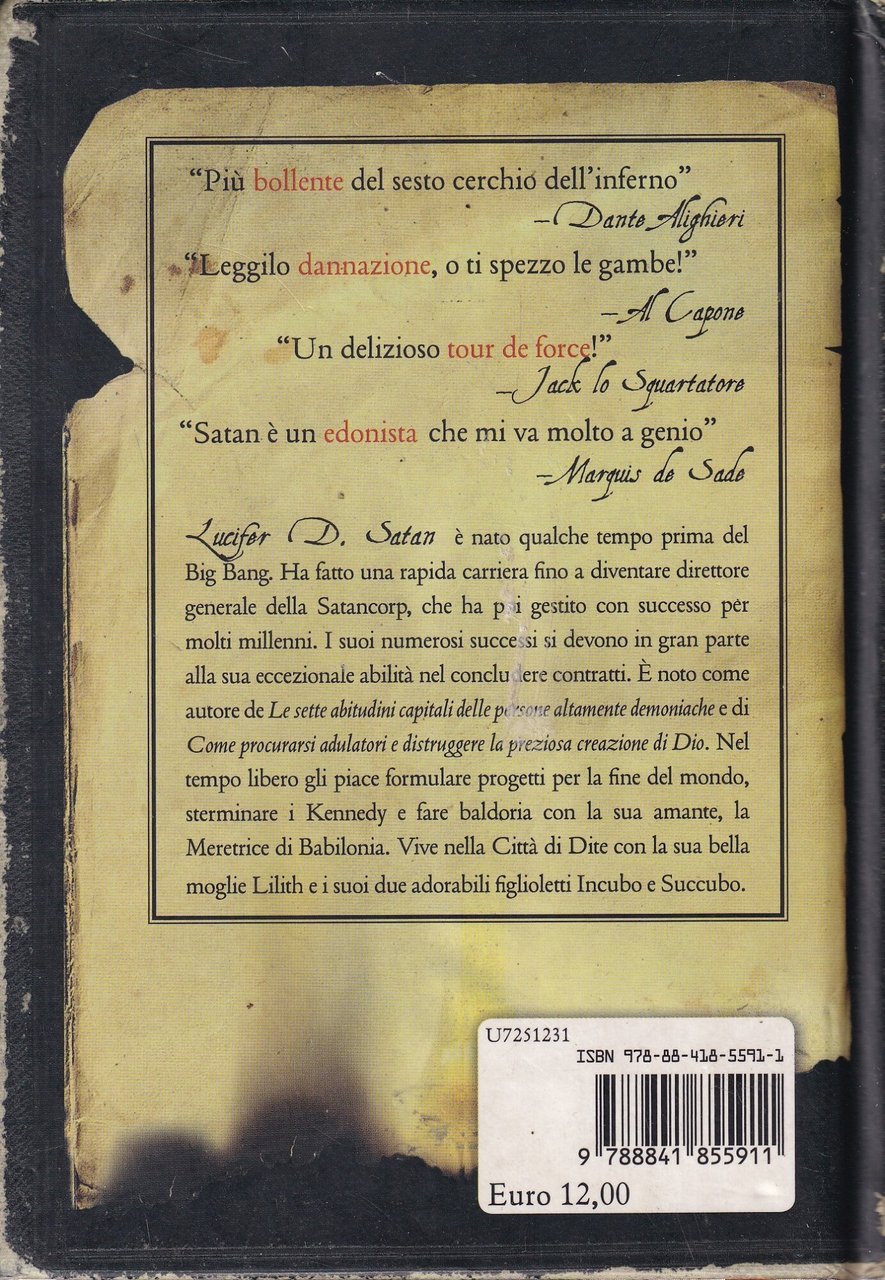 “Più bollente del sesto cerchio dell’inferno”
–Dante Alighieri
“Leggilo dannazione, o ti spezzo le gambe!”
–Al Capone
“Un delizioso tour de force!”
–Jack lo Squartatore
“Satan è un edonista che mi va molto a genio”
–Marquis de Sade
Lucifer D. Satan è nato qualche tempo prima del
Big Bang. Ha fatto una rapida carriera fino a diventare direttore
generale della Satancorp, che ha poi gestito con successo per
molti millenni. I suoi numerosi successi si devono in gran parte
alla sua eccezionale abilità nel concludere contratti. È noto come
autore de Le sette abitudini capitali delle persone altamente demoniache e di
Come procurarsi adulatori e distruggere la preziosa creazione di Dio. Nel
tempo libero gli piace formulare progetti per la fine del mondo,
sterminare i Kennedy e fare baldoria con la sua amante, la
Meretrice di Babilonia. Vive nella Città di Dite con la sua bella
moglie Lilith e i suoi due adorabili figlioletti Incubo e Succubo.
U7251231
ISBN 978-88-418-5591-1
9 788841 855911
Euro 12,00